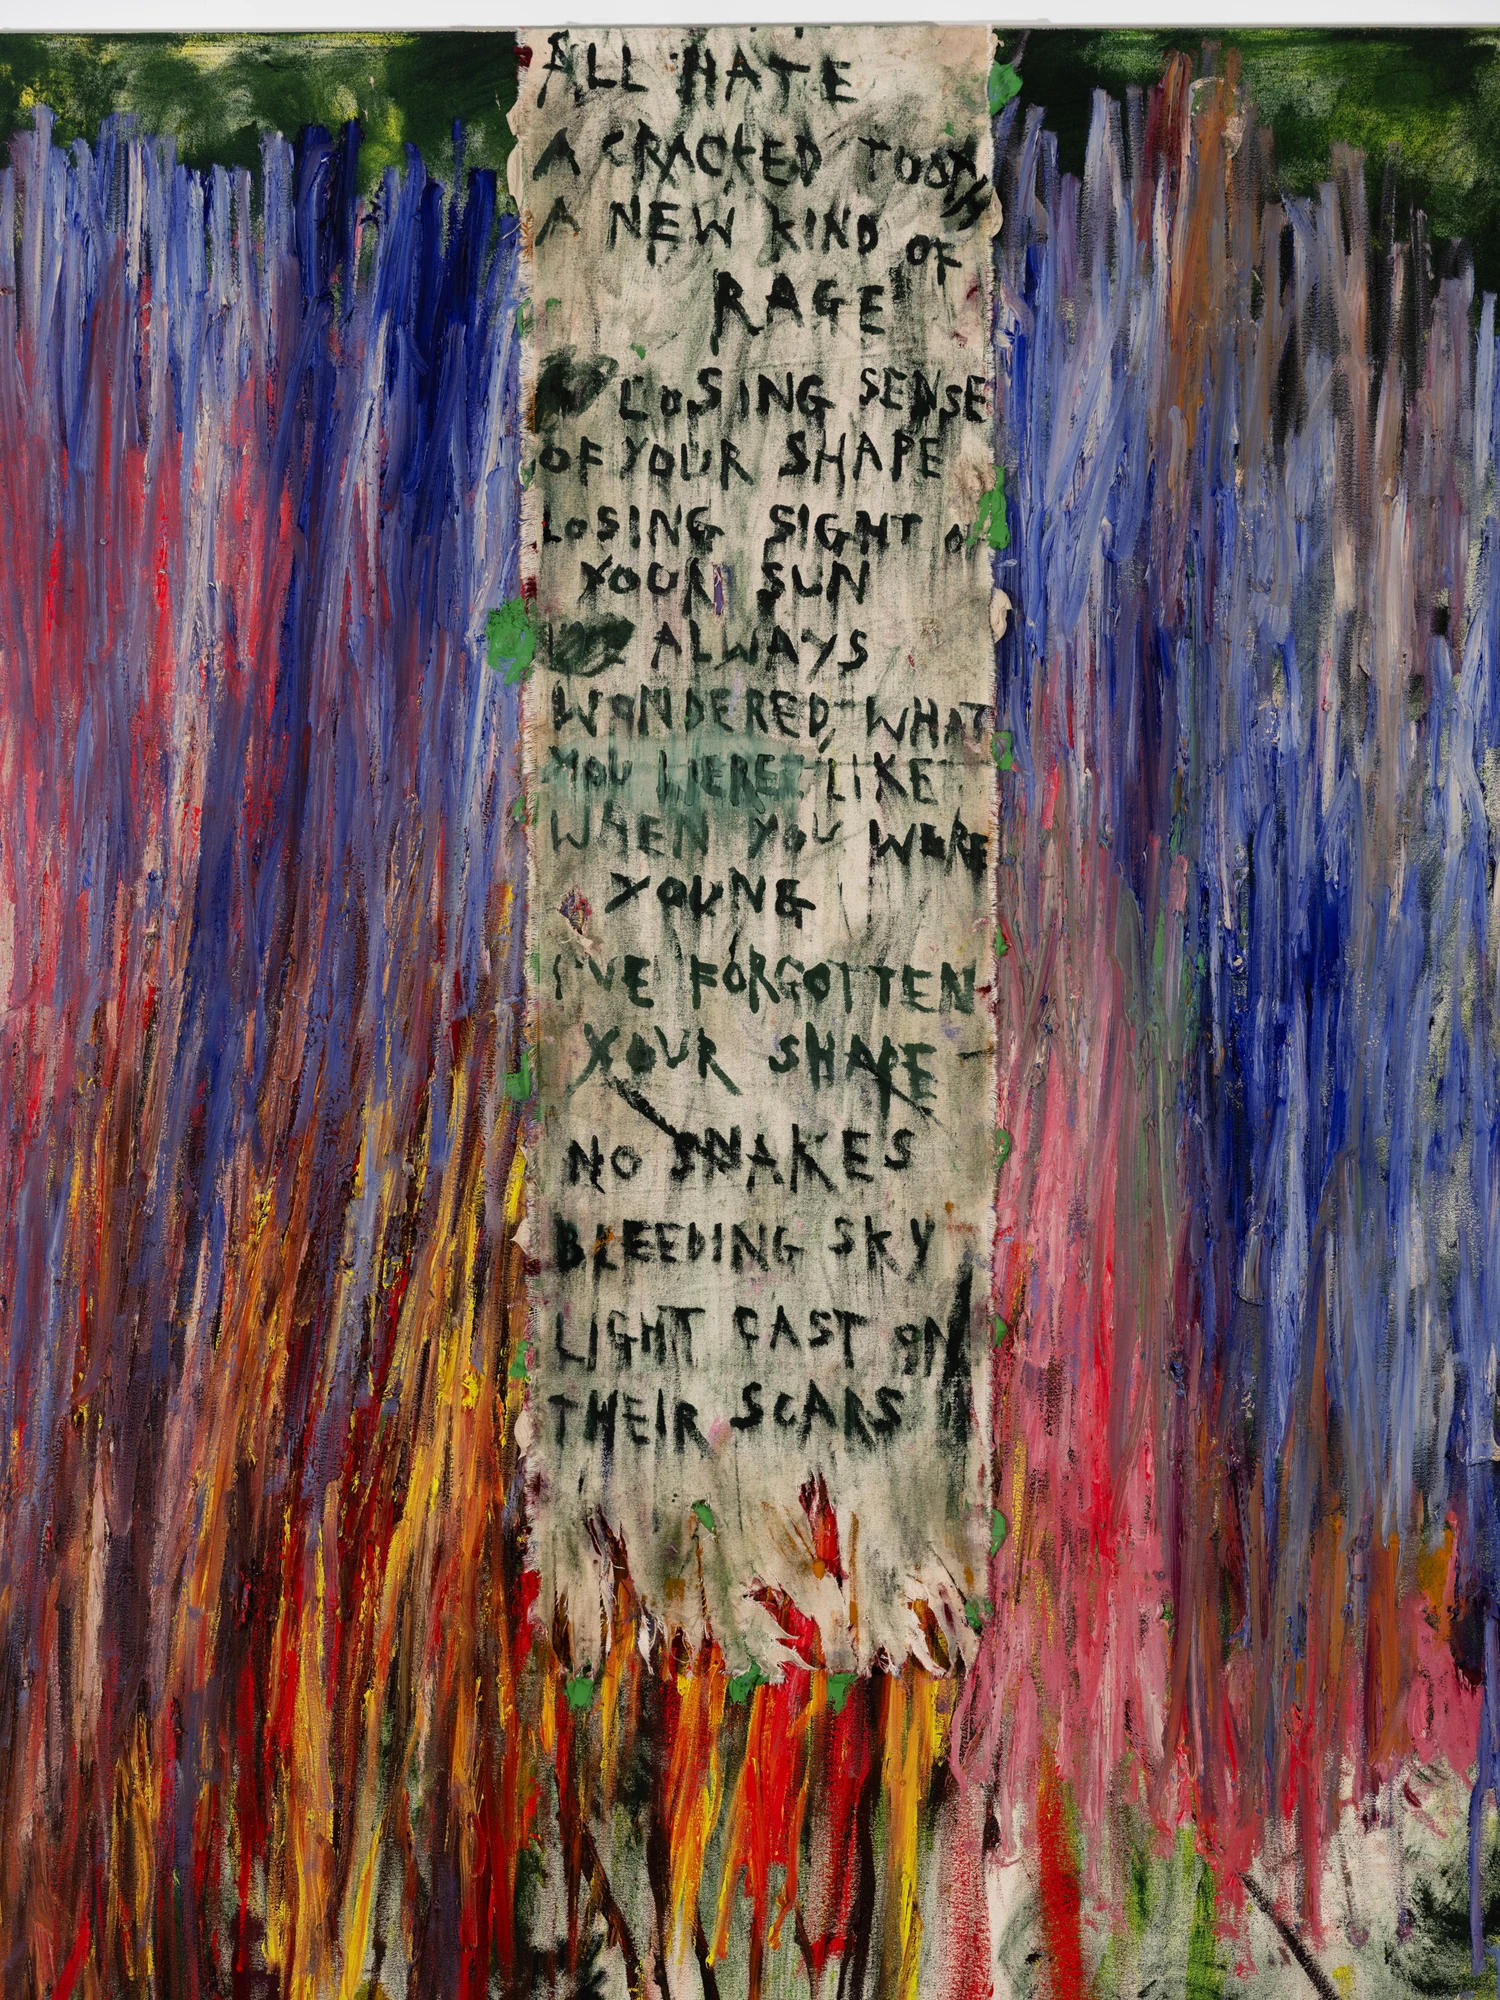 ALL HATE
A CRACKED TOOTH
A NEW KIND OF
RAGE
LOSING SENSE
OF YOUR SHAPE
LOSING SIGHT OF
YOUR SUN
ALWAYS
WONDERED, WHAT
YOU WERE LIKE
WHEN YOU WERE
YOUNG
I'VE FORGOTTEN
YOUR SHAPE
NO SNAKES
BLEEDING SKY
LIGHT CAST ON
THEIR SCARS